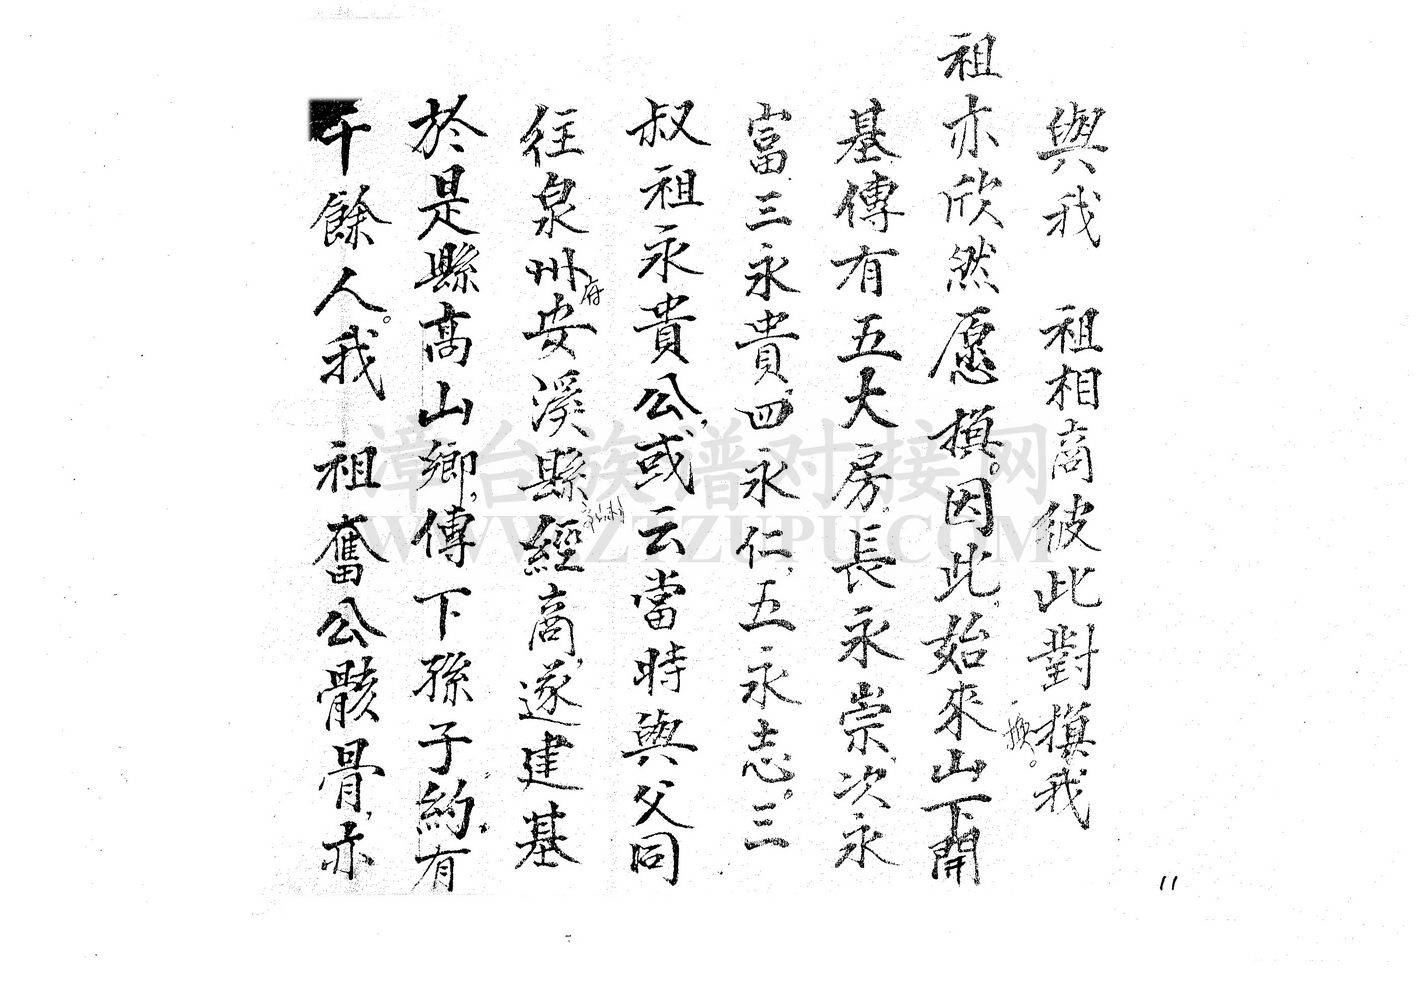 與我　祖相商彼此對摃我
祖亦欣然愿摃。因此,始來山下開
基傳有五大房,長永崇,次永
富,三永貴,四永仁,五永志。三
叔祖永貴公,或云當時與父同
往泉州府安溪縣經商,遂建基
於是縣高山鄉,傳下孫子約,有
千餘人。我　祖奮公骸骨,亦
11
漳台族谱对接网
WWW.ZTZUPU.COM